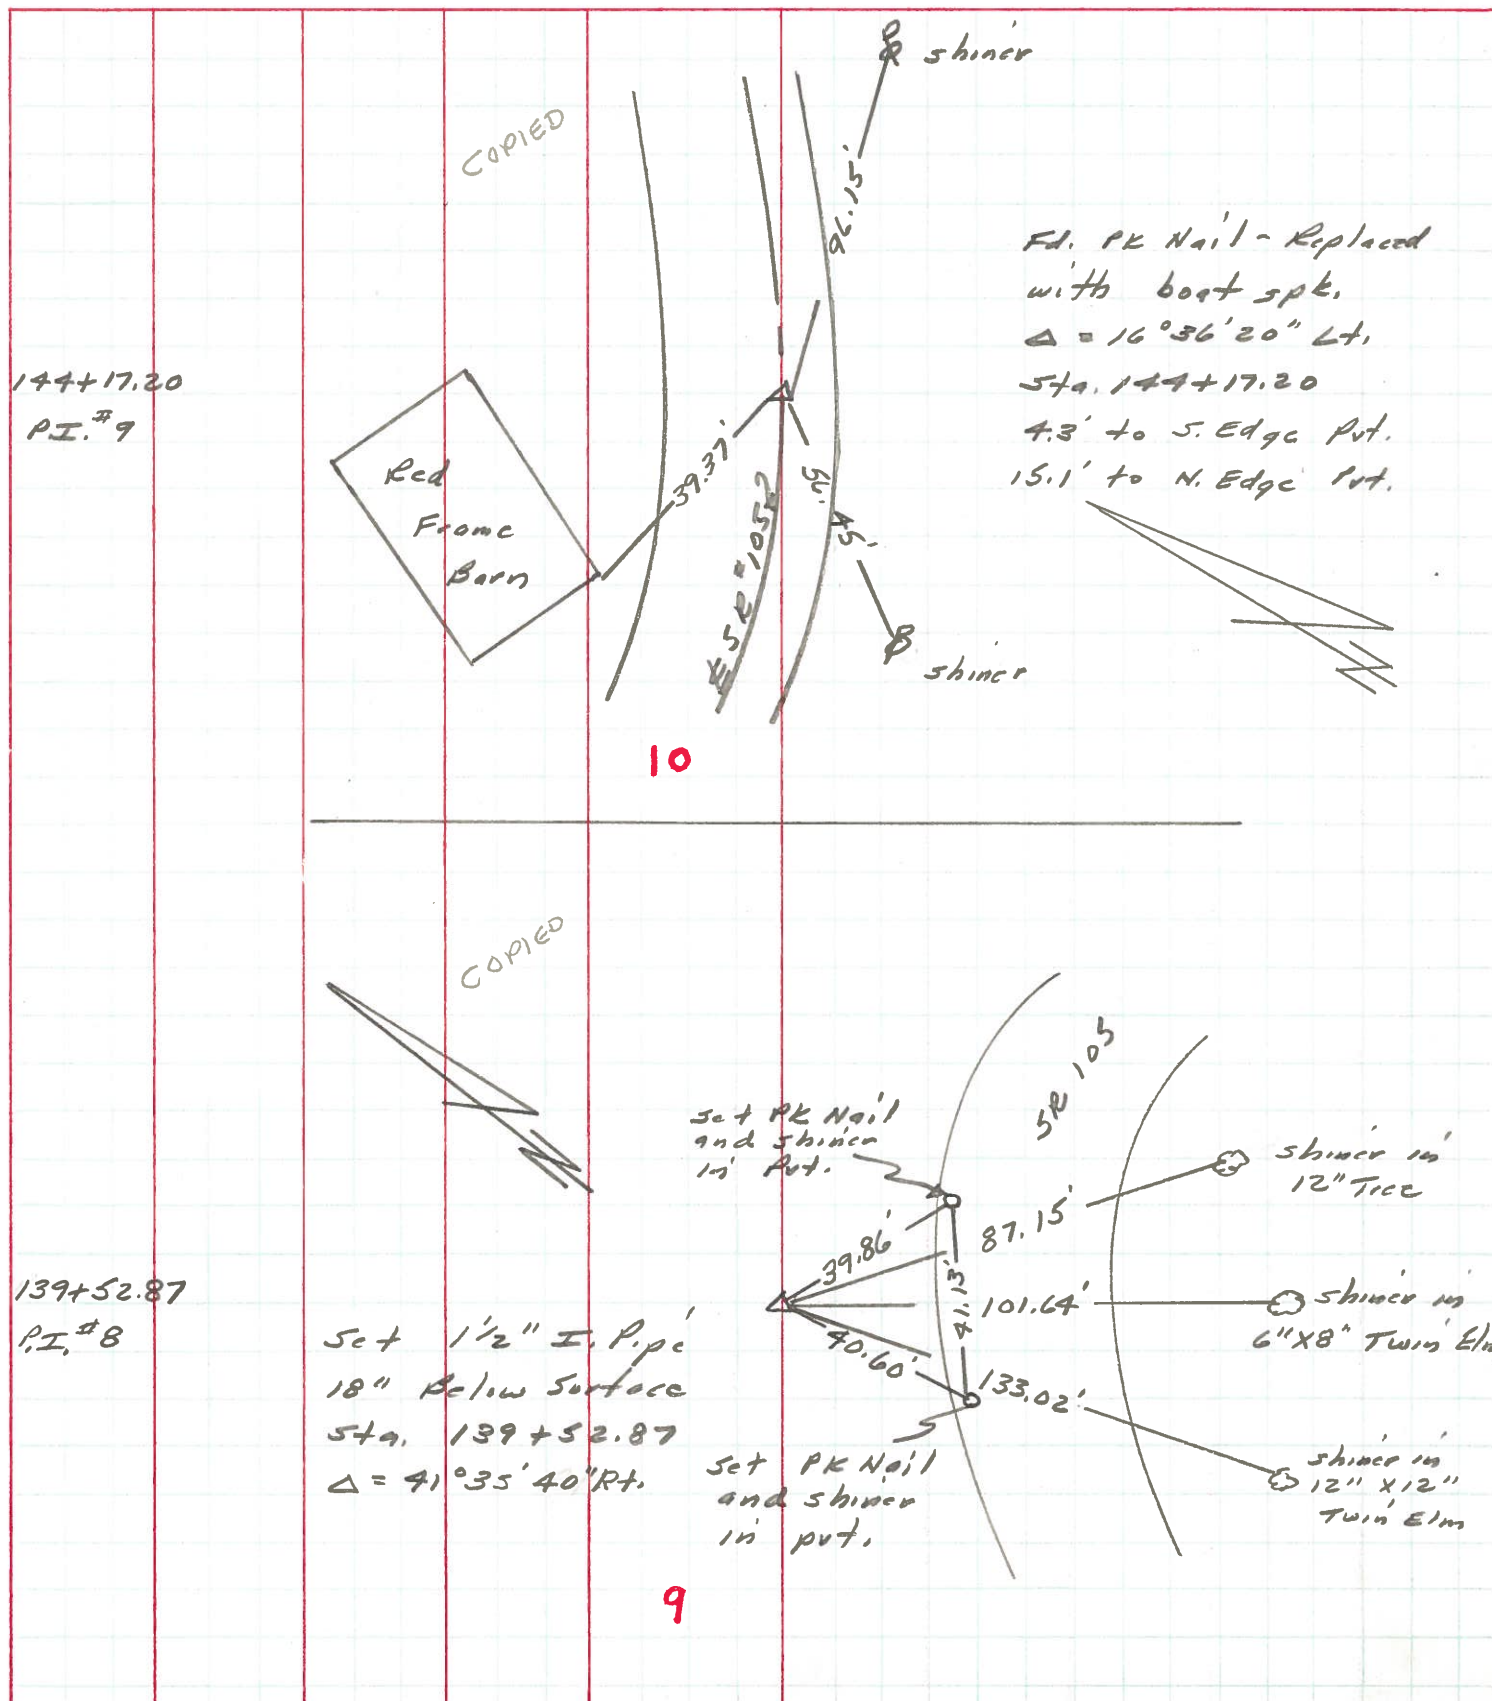 shiner
COPIED
96.15'
Fd. PK Nail - Replaced
with boat spk.
Δ = 16°36'20" Lt.
Sta. 144+17.20
4.3' to S. Edge Pvt.
15.1' to N. Edge Pvt.
144+17.20
P.I. #9
Red
Frame
Barn
39.37'
56.45'
℄ SR 105
shiner
10
COPIED
SR 105
Set PK Nail
and shiner
in Pvt.
shiner in
12" Tree
39.86'
87.15'
41.13'
139+52.87
P.I. #8
101.64'
shiner in
6"X8" Twin Elm
40.60'
133.02'
Set 1½" I. Pipe
18" Below Surface
Sta. 139+52.87
Δ = 41°35'40" Rt.
Set PK Nail
and shiner
in pvt.
shiner in
12" X 12"
Twin Elm
9